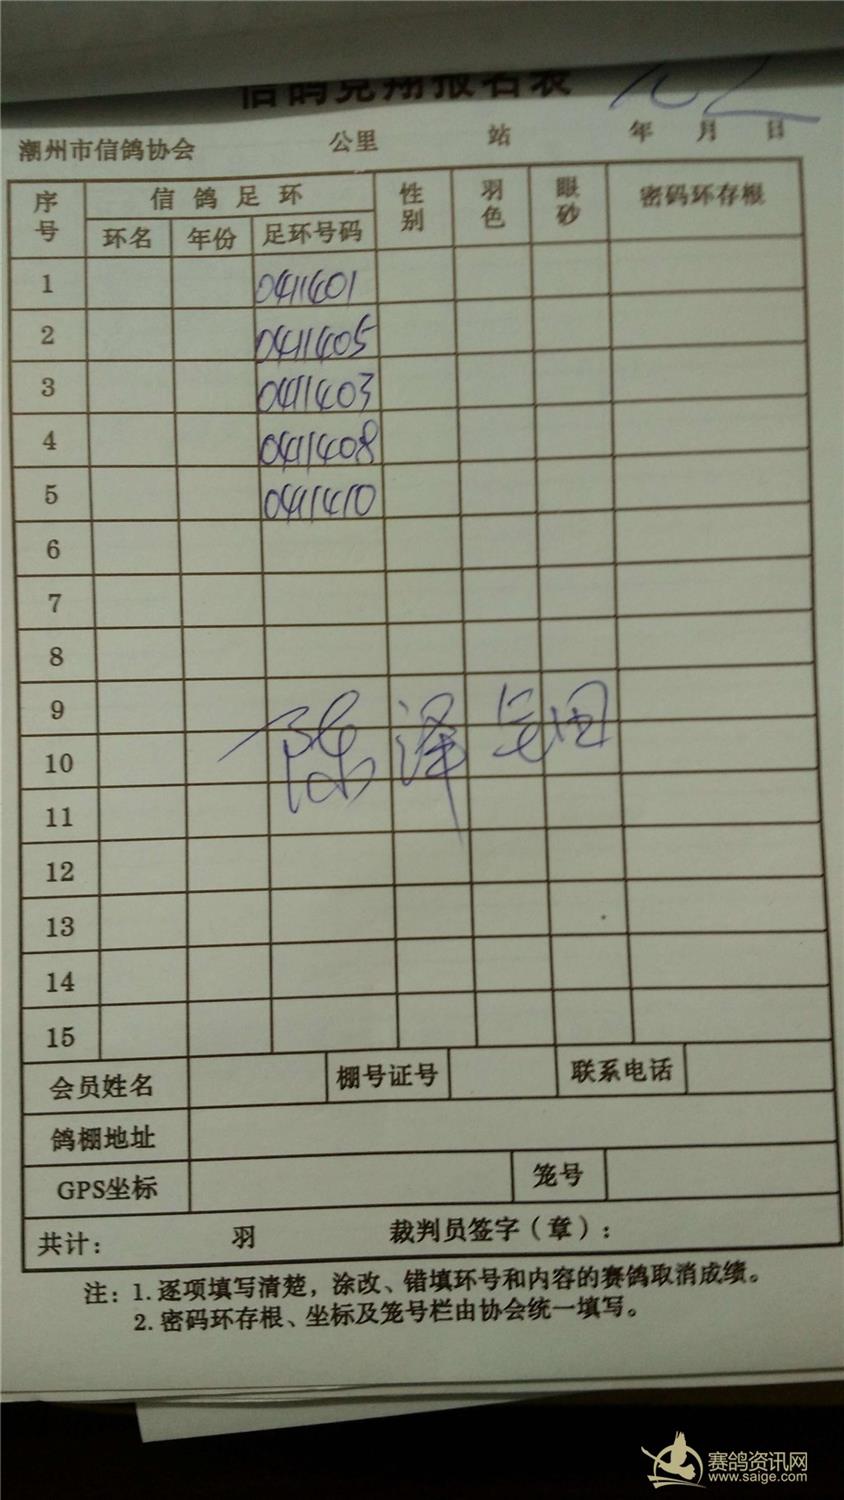 信鸽竞翔报名表
潮州市信鸽协会 公里 站 年 月 日
序号 信鸽足环 性别 羽色 眼砂 密码环存根
环名 年份 足环号码
1 0411401
2 0411405
3 0411403
4 0411408
5 0411410
6
7
8
9
陈泽
10
11
12
13
14
15
会员姓名 棚号证号 联系电话
鸽棚地址
GPS坐标 笼号
共计： 羽 裁判员签字（章）：
注：1.逐项填写清楚，涂改、错填环号和内容的赛鸽取消成绩。
2.密码环存根、坐标及笼号栏由协会统一填写。
赛鸽资讯网
www.saige.com